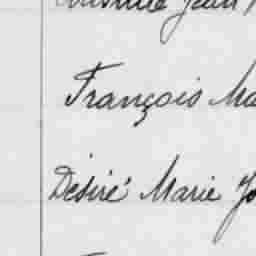 Jean
François Ma
Désiré Marie Jo